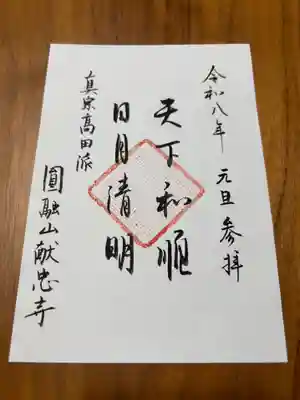 令和八年 元旦参拝
天下和順
日月清明
真宗高田派
圓融山献忠寺